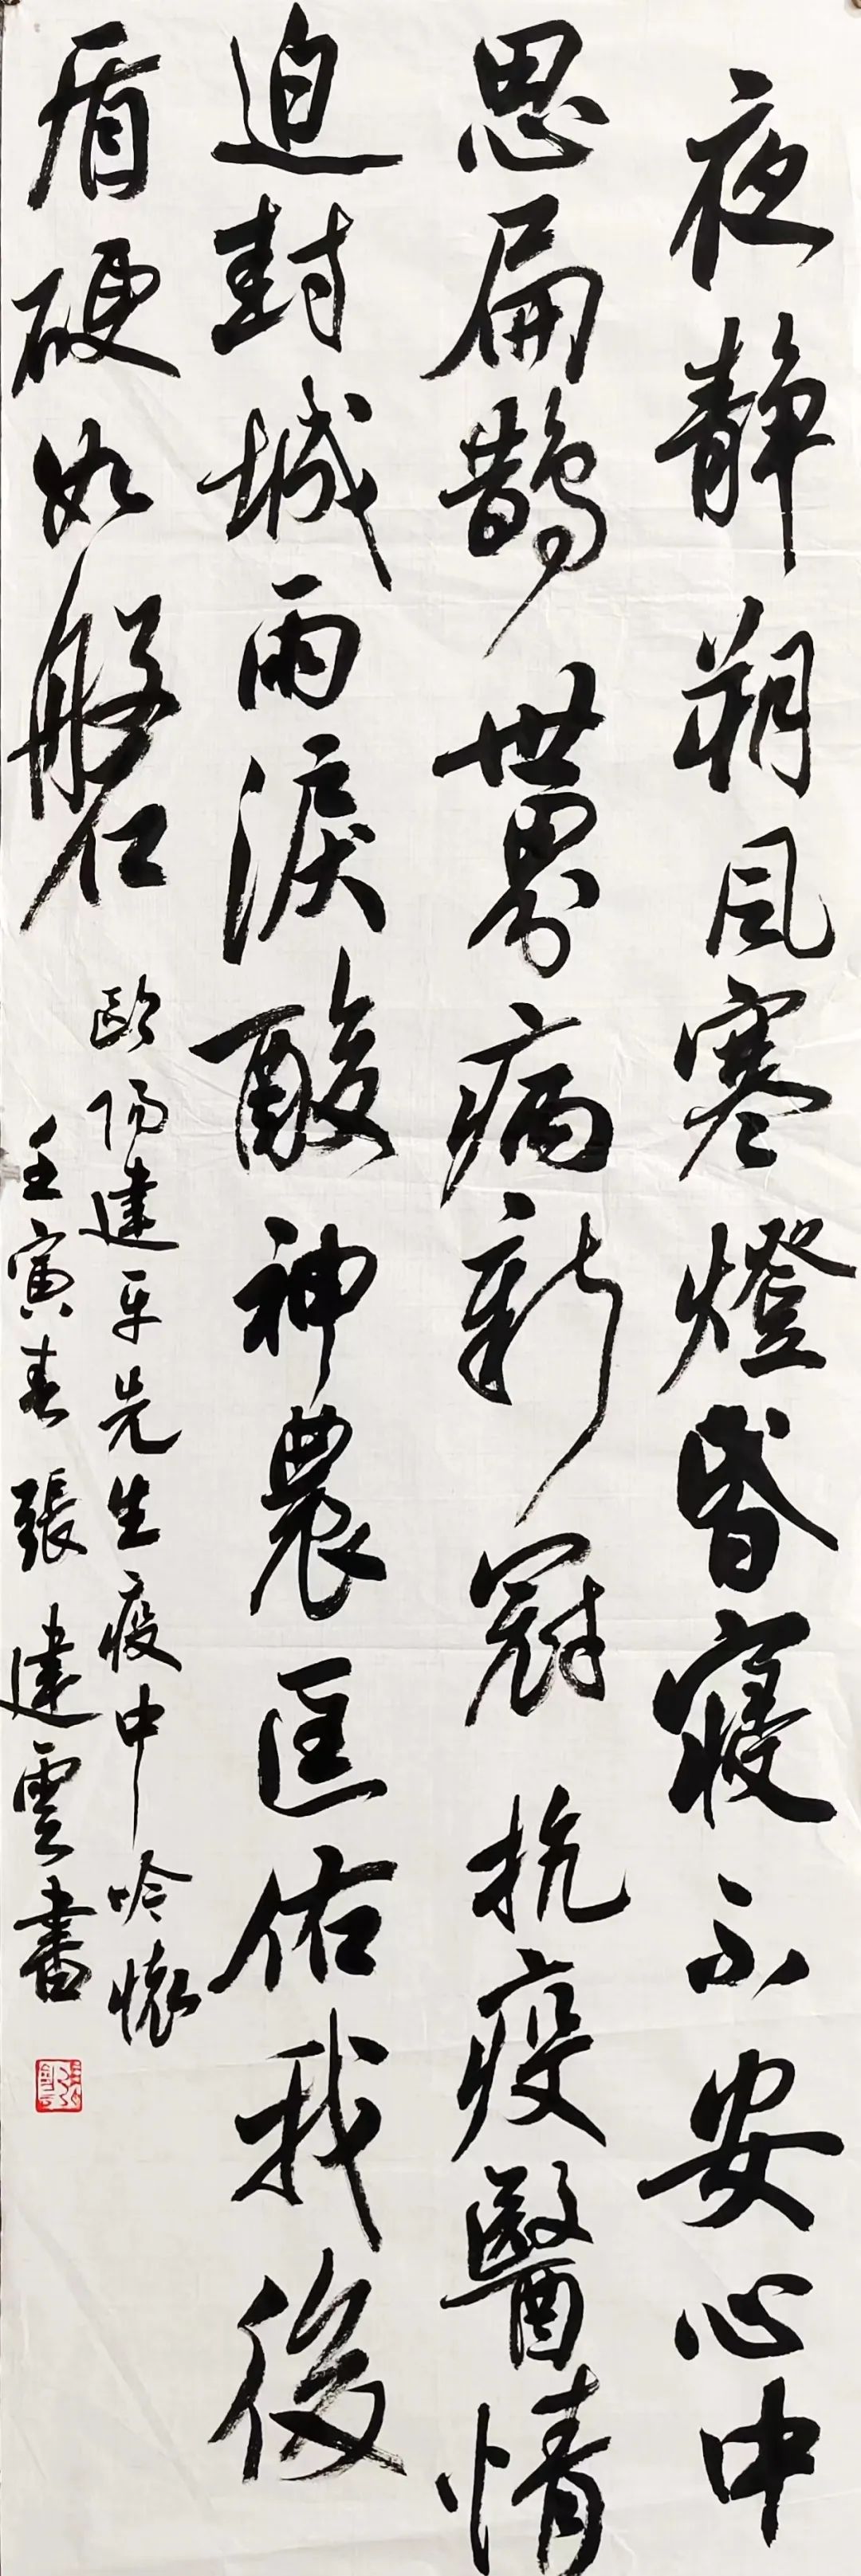 夜静朔風寒燈昏寢不安心中
思扁鵲世界病新冠抗疫醫情
迫封城雨淚酸神農匡佑我後
盾硬如磐
歐陽建平先生疫中吟懷
壬寅春張建雲書